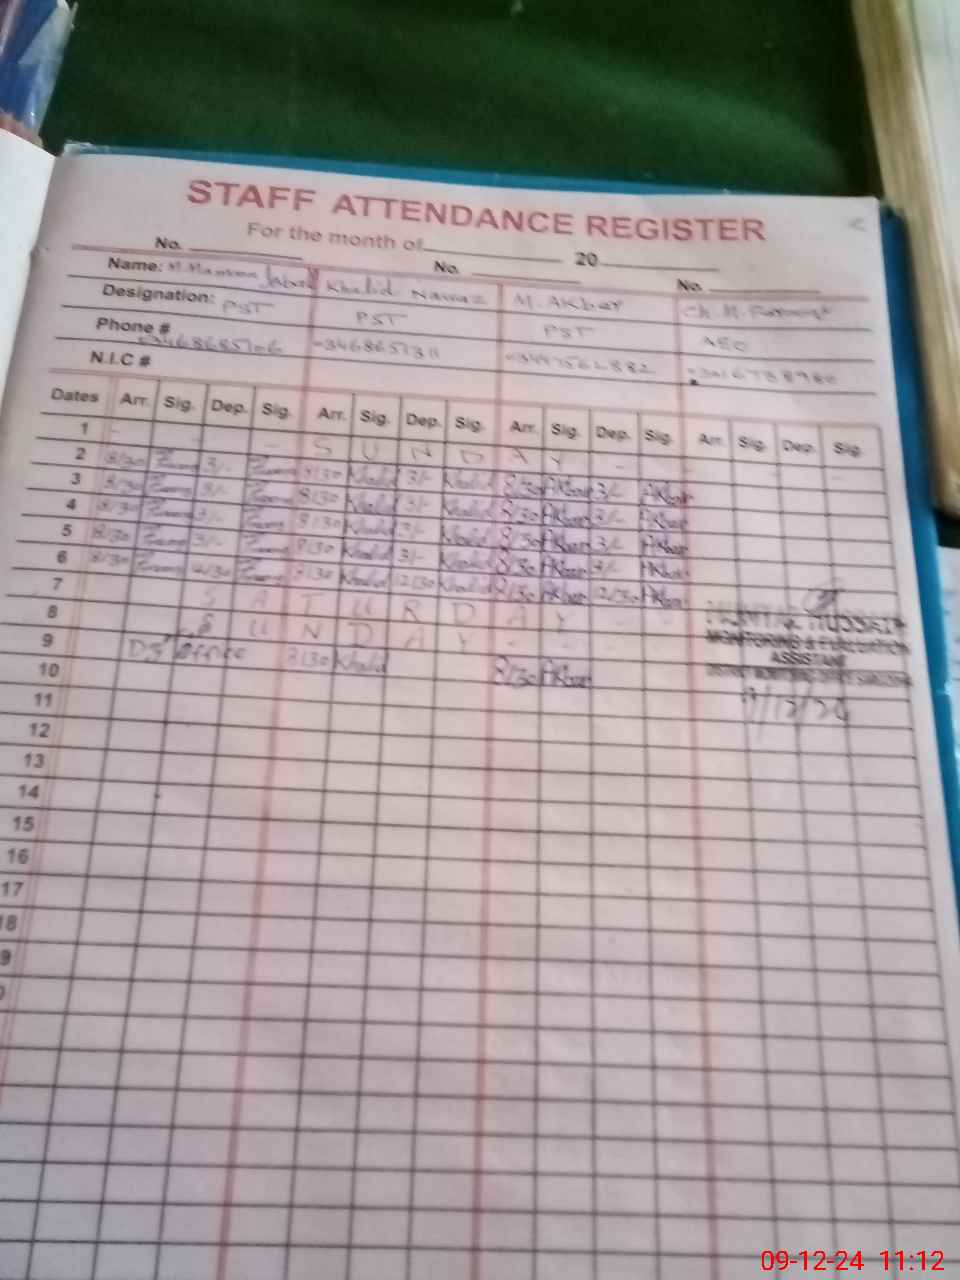 STAFF ATTENDANCE REGISTER
For the month of 20
No. No. No.
Name: Khalid Nawaz M. Akbar Ch. M.
Designation: PST PST PST AEO
Phone #
N.I.C #
Dates Arr. Sig. Dep. Sig. Arr. Sig. Dep. Sig. Arr. Sig. Dep. Sig. Arr. Sig. Dep. Sig.
1 - - - S U N D A Y - - - -
2 8/30 3/- 8/30 Khalid 3/- Khalid 8/30 Akbar 3/- Akbar
3 8/30 3/- 8/30 Khalid 3/- Khalid 8/30 Akbar 3/- Akbar
4 8/30 3/- 8/30 Khalid 3/- Khalid 8/30 Akbar 3/- Akbar
5 8/30 3/- 8/30 Khalid 3/- Khalid 8/30 Akbar 3/- Akbar
6 8/30 12/30 8/30 Khalid 12/30 Khalid 8/30 Akbar 12/30 Akbar
7 S A T U R D A Y - - -
8 S U N D A Y - - - -
9 office 8/30 Khalid 8/30 Akbar
10
11
12
13
14
15
16
17
18
9
HUSSAIN
MONITORING & EVALUATION
ASSISTANT
9/12/24
09-12-24 11:12